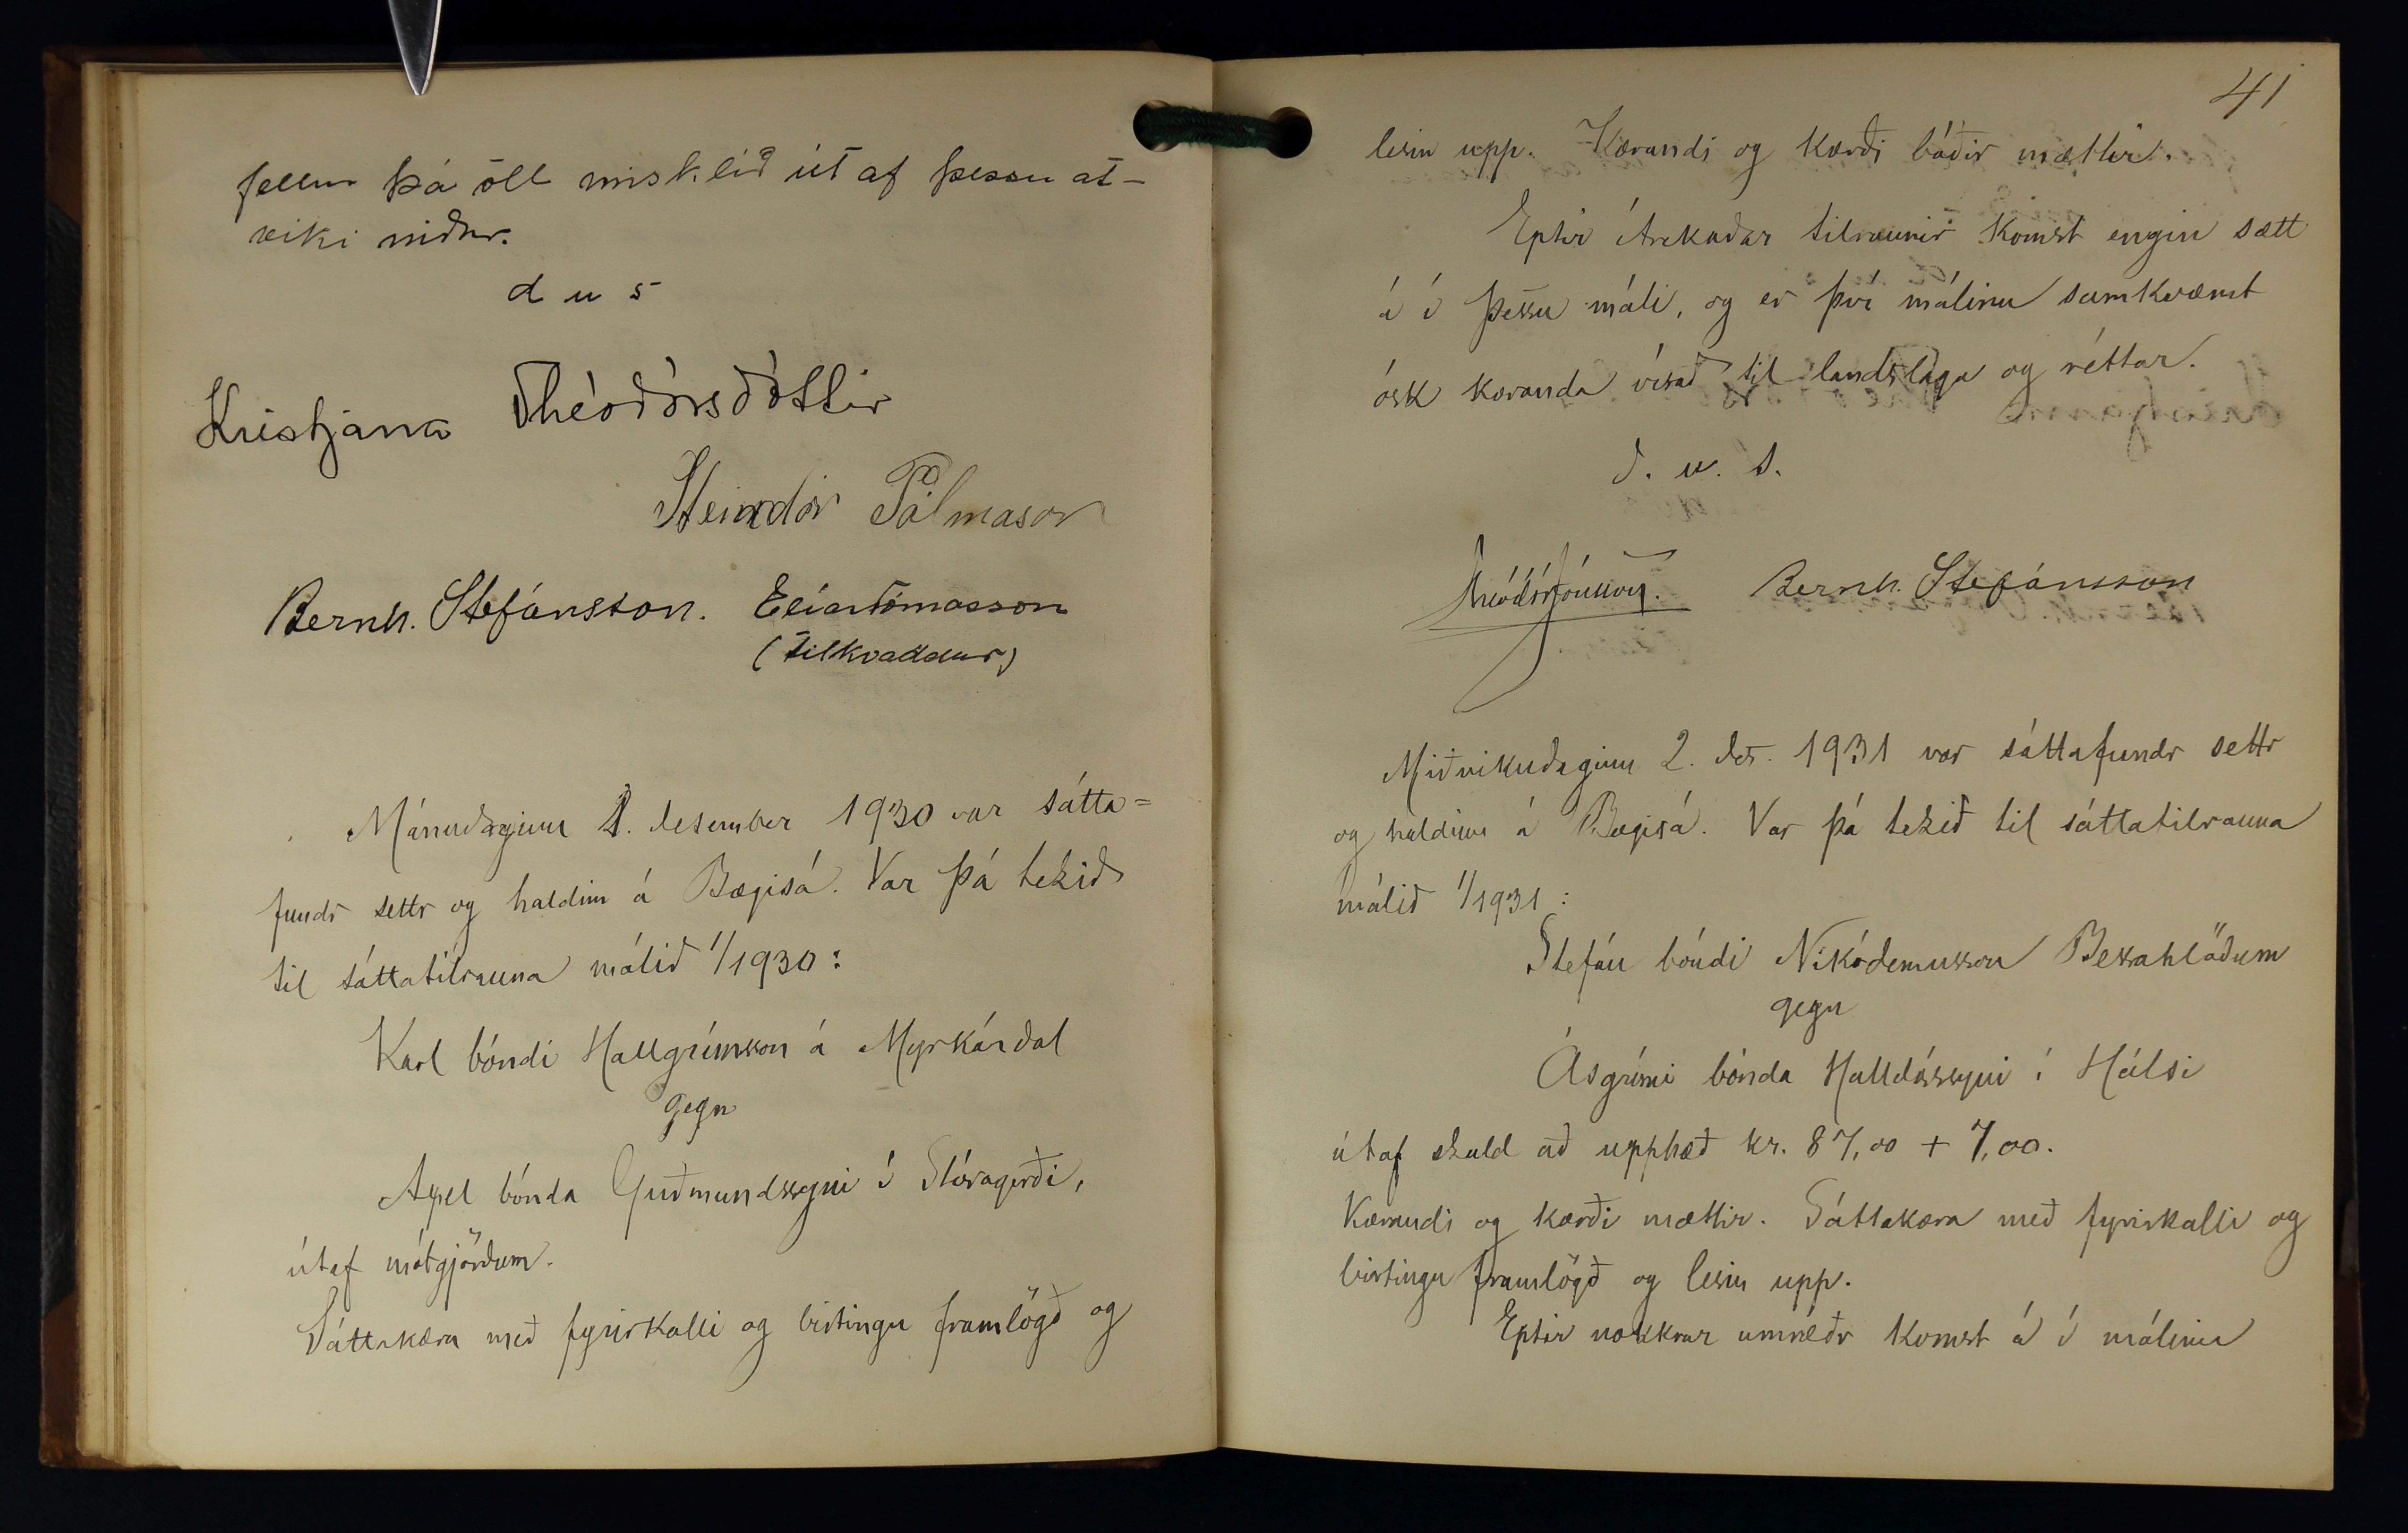 fellur þá öll misklíð út af þessu at-
viki niður.
d u s
Kristjana Théódórsdóttir
Steindór Pálmason
Bernh. Stefánsson. Elías Tómasson
(tilkvaddur)
Mánudaginn 1. desember 1930 var sátta=
fundr settr og haldinn á Bægisá. Var þá tekið
til sáttatilrauna málið 1/1930:
Karl bóndi Hallgrímsson á Myrkárdal
gegn
Axel bónda Guðmundssyni í Stóragerði,
útaf mótgjörðum.
Sáttakæra með fyrirkalli og birtingu framlögð og
41
lesin upp. Kærandi og kærði báðir mættir.
Eptir ítrekaðar tilraunir komst engin sætt
á í þessu máli, og er því málinu samkvæmt
ósk kæranda vísað til landslaga og réttar.
D. u. s.
Theódór Jónsson. Bernh. Stefánsson
Miðvikudaginn 2. des. 1931 var sáttafundr settr
og haldinn á Bægisá. Var þá tekið til sáttatilrauna
málið 1/1931:
Stefán bóndi Nikódemusson Bessahlöðum
gegn
Ásgrími bónda Halldórssyni í Hálsi
útaf skuld að upphæð kr. 87,00 + 7,00.
Kærandi og kærði mættir. Sáttakæra með fyrirkalli og
birtingu framlögð og lesin upp.
Eptir nokkrar umræðr komst á í málinu